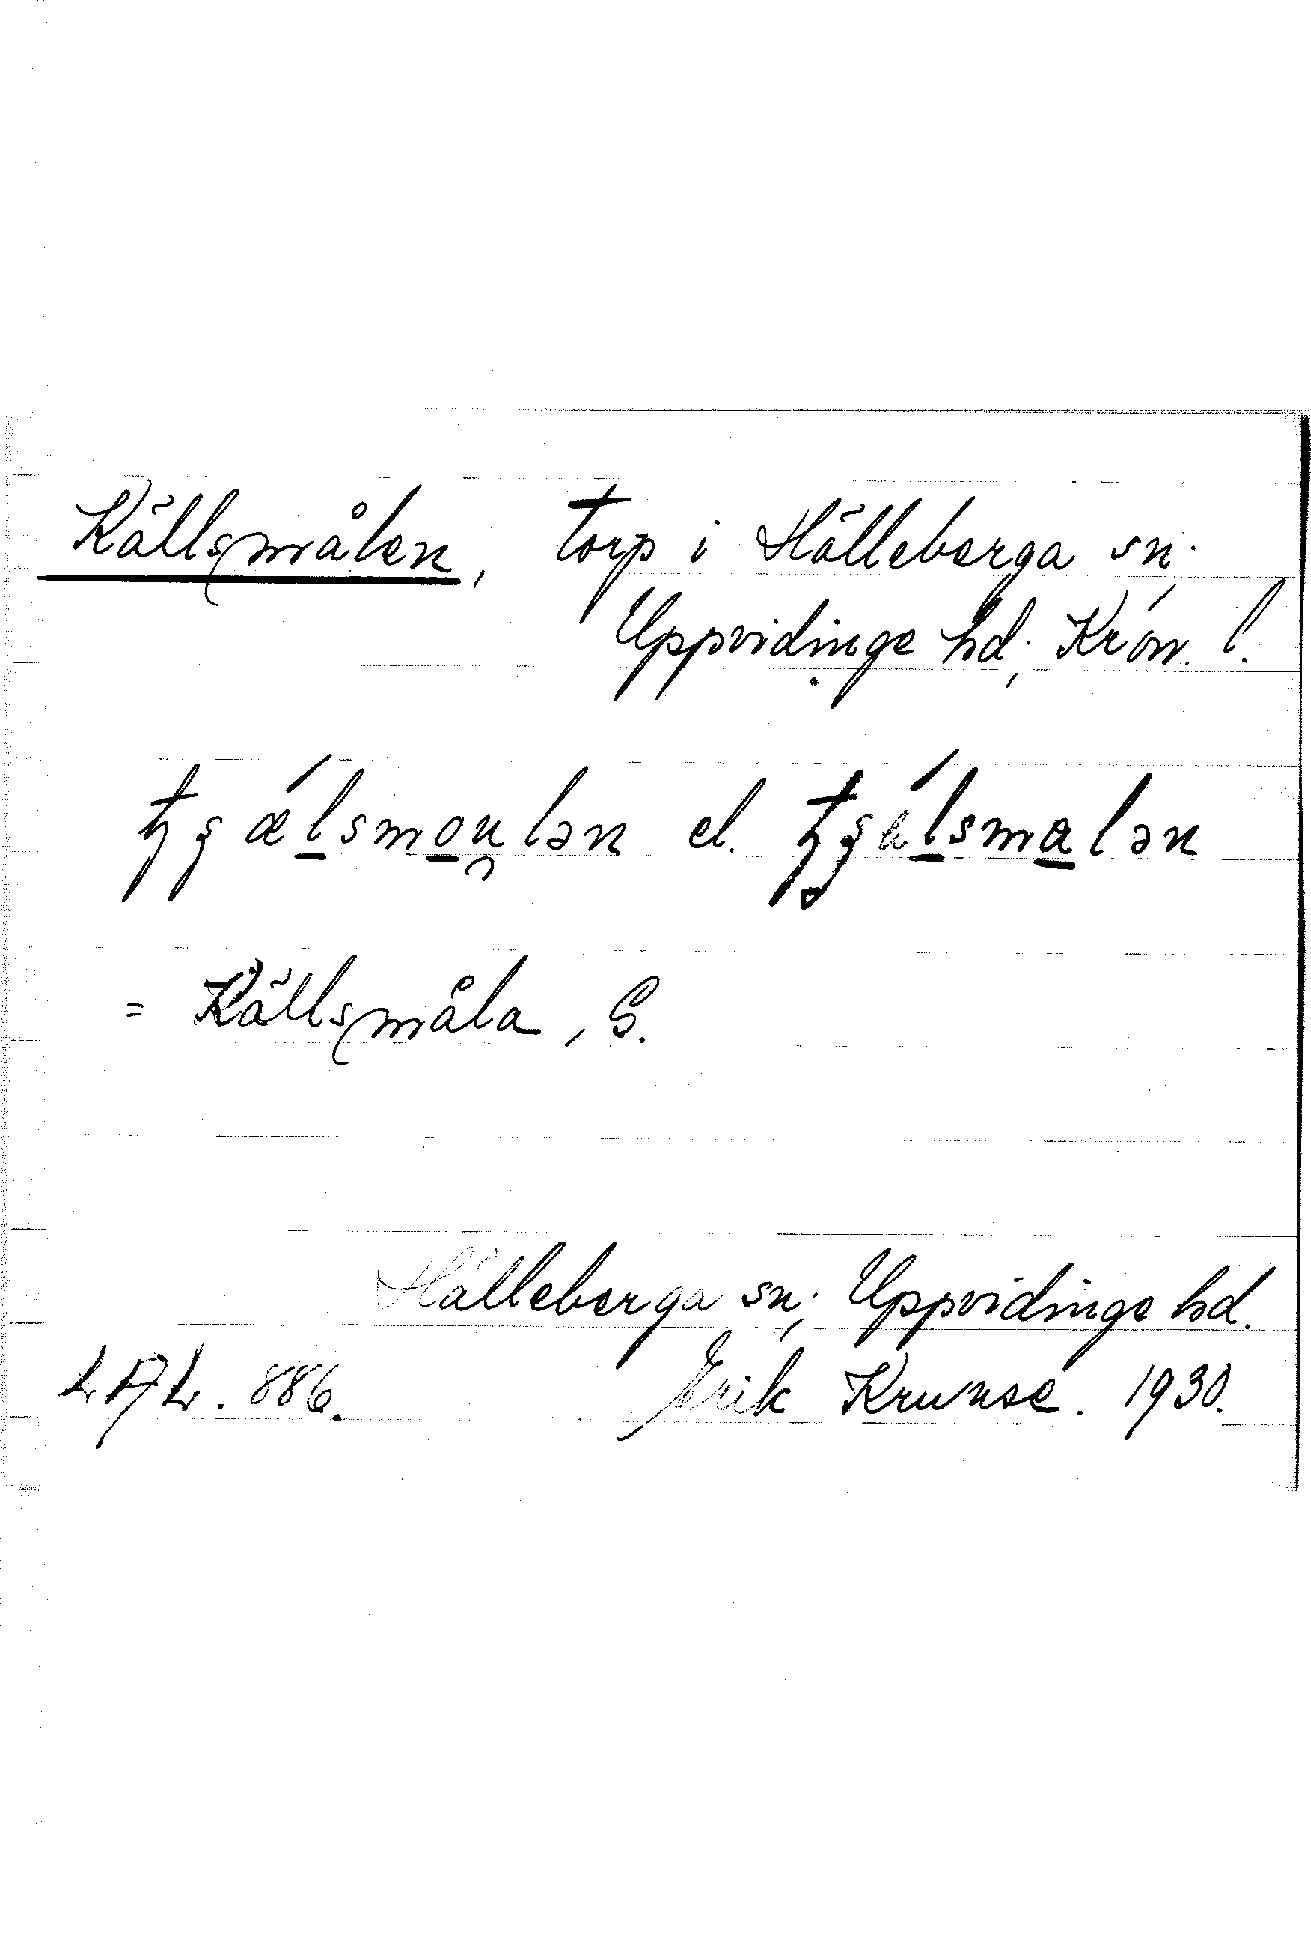 Källsmålen, torp i Hälleberga sn;
Uppvidinge hd; Kron. l.
el.
= Källsmåla, G.
Hälleberga sn; Uppvidinge hd.
LAL. 886. Erik Krunse. 1930.